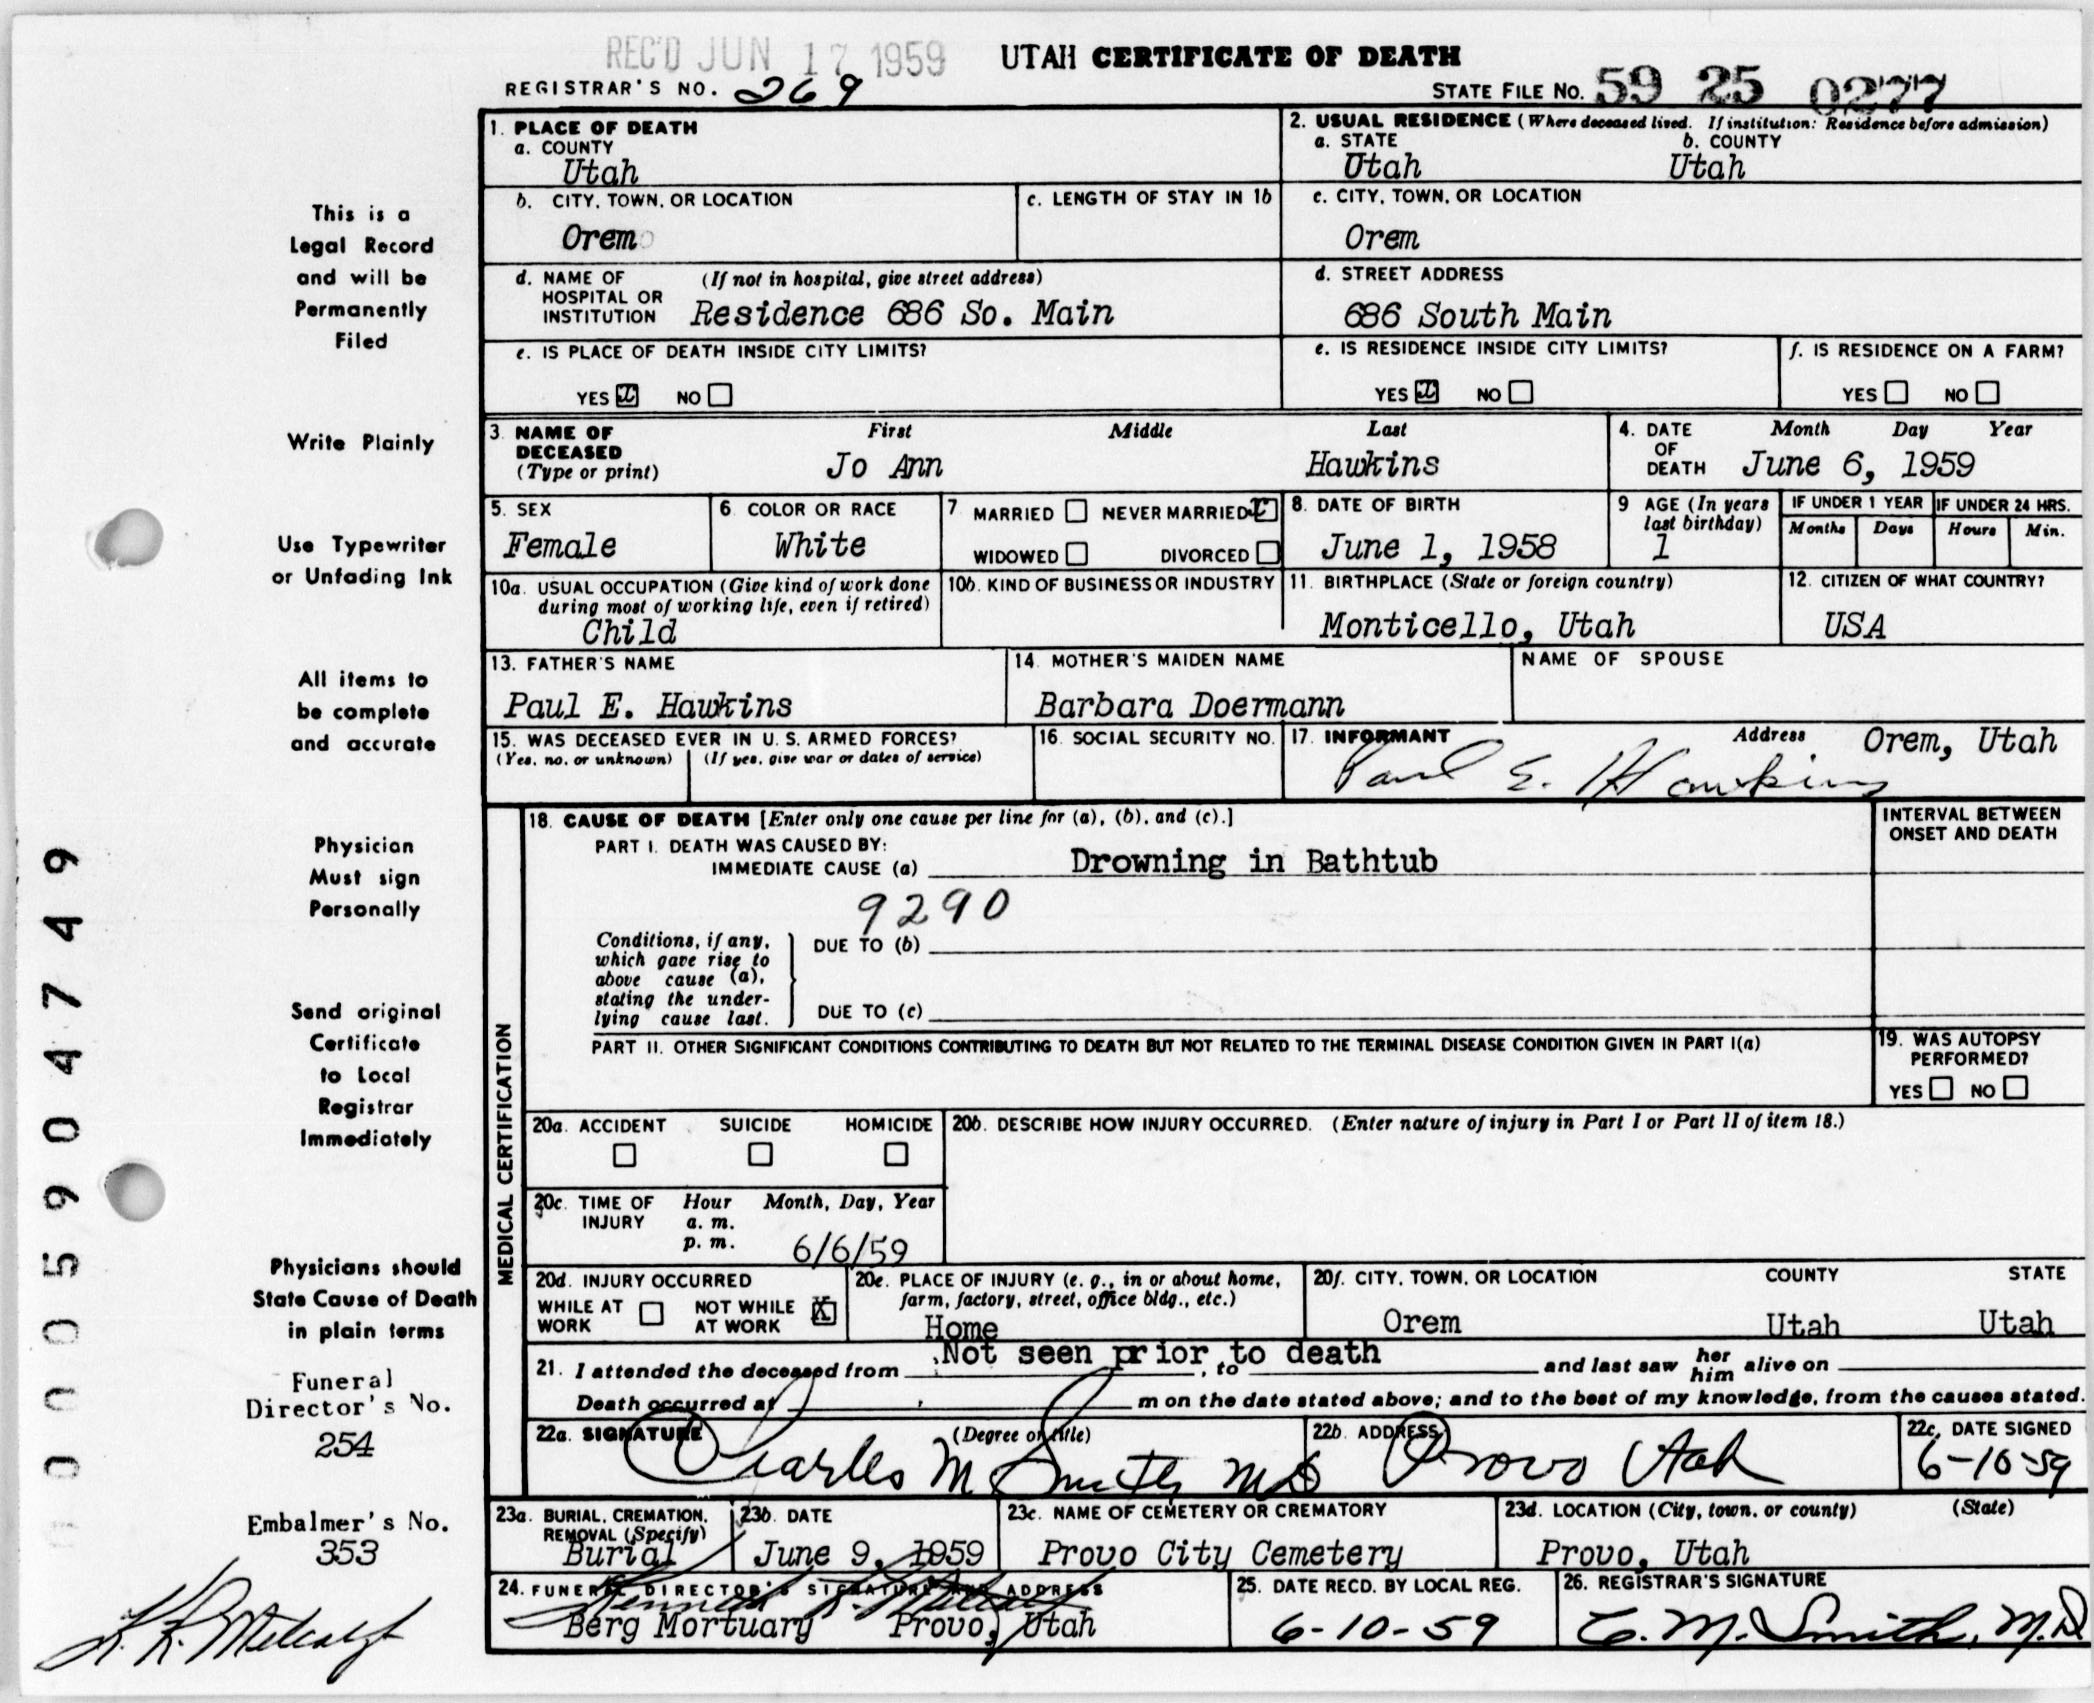 REC'D JUN 17 1959
UTAH CERTIFICATE OF DEATH
REGISTRAR'S NO. 269
STATE FILE NO. 59 25 0277
1. PLACE OF DEATH
a. COUNTY
Utah
2. USUAL RESIDENCE (Where deceased lived. If institution: Residence before admission)
a. STATE b. COUNTY
Utah Utah
b. CITY, TOWN, OR LOCATION
Orem
c. LENGTH OF STAY IN 1b
c. CITY, TOWN, OR LOCATION
Orem
d. NAME OF HOSPITAL OR INSTITUTION (If not in hospital, give street address)
Residence 686 So. Main
d. STREET ADDRESS
686 South Main
e. IS PLACE OF DEATH INSIDE CITY LIMITS?
YES x NO
e. IS RESIDENCE INSIDE CITY LIMITS?
YES x NO
f. IS RESIDENCE ON A FARM?
YES NO
3. NAME OF DECEASED (Type or print) First Middle Last
Jo Ann Hawkins
4. DATE OF DEATH Month Day Year
June 6, 1959
5. SEX
Female
6. COLOR OR RACE
White
7. MARRIED NEVER MARRIED x
WIDOWED DIVORCED
8. DATE OF BIRTH
June 1, 1958
9 AGE (In years last birthday)
1
IF UNDER 1 YEAR IF UNDER 24 HRS.
Months Days Hours Min.
10a. USUAL OCCUPATION (Give kind of work done during most of working life, even if retired)
Child
10b. KIND OF BUSINESS OR INDUSTRY
11. BIRTHPLACE (State or foreign country)
Monticello, Utah
12. CITIZEN OF WHAT COUNTRY?
USA
13. FATHER'S NAME
Paul E. Hawkins
14. MOTHER'S MAIDEN NAME
Barbara Doermann
NAME OF SPOUSE
15. WAS DECEASED EVER IN U. S. ARMED FORCES?
(Yes, no, or unknown) (If yes, give war or dates of service)
16. SOCIAL SECURITY NO.
17. INFORMANT Address
Paul E. Hawkins Orem, Utah
MEDICAL CERTIFICATION
18. CAUSE OF DEATH [Enter only one cause per line for (a), (b), and (c).]
PART I. DEATH WAS CAUSED BY:
IMMEDIATE CAUSE (a) Drowning in Bathtub
9290
INTERVAL BETWEEN ONSET AND DEATH
Conditions, if any, which gave rise to above cause (a), stating the underlying cause last.
DUE TO (b)
DUE TO (c)
PART II. OTHER SIGNIFICANT CONDITIONS CONTRIBUTING TO DEATH BUT NOT RELATED TO THE TERMINAL DISEASE CONDITION GIVEN IN PART I(a)
19. WAS AUTOPSY PERFORMED?
YES NO
20a. ACCIDENT SUICIDE HOMICIDE
20b. DESCRIBE HOW INJURY OCCURRED. (Enter nature of injury in Part I or Part II of item 18.)
20c. TIME OF INJURY Hour Month, Day, Year
a. m.
p. m.
6/6/59
20d. INJURY OCCURRED
WHILE AT WORK NOT WHILE AT WORK X
20e. PLACE OF INJURY (e. g., in or about home, farm, factory, street, office bldg., etc.)
Home
20f. CITY, TOWN, OR LOCATION COUNTY STATE
Orem Utah Utah
21. I attended the deceased from Not seen prior to death, to and last saw her him alive on
Death occurred at m on the date stated above; and to the best of my knowledge, from the causes stated.
22a. SIGNATURE (Degree or title)
Charles M Smith MD
22b. ADDRESS
Provo Utah
22c. DATE SIGNED
6-10-59
23a. BURIAL, CREMATION, REMOVAL (Specify)
Burial
23b. DATE
June 9, 1959
23c. NAME OF CEMETERY OR CREMATORY
Provo City Cemetery
23d. LOCATION (City, town, or county) (State)
Provo, Utah
24. FUNERAL DIRECTOR'S SIGNATURE AND ADDRESS
Berg Mortuary Provo, Utah
25. DATE RECD. BY LOCAL REG.
6-10-59
26. REGISTRAR'S SIGNATURE
C. M. Smith, M.D.
This is a
Legal Record
and will be
Permanently
Filed
Write Plainly
Use Typewriter
or Unfading Ink
All items to
be complete
and accurate
Physician
Must sign
Personally
Send original
Certificate
to Local
Registrar
Immediately
Physicians should
State Cause of Death
in plain terms
Funeral
Director's No.
254
Embalmer's No.
353
K. R. Metcalf
0005904749